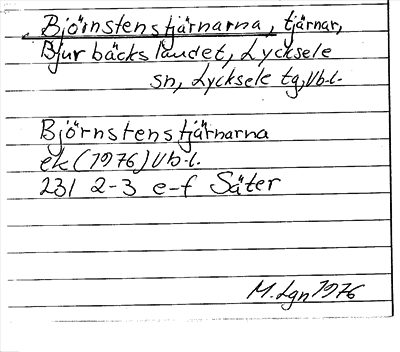 Björnstenstjärnarna, tjärnar,
Bjurbäckslandet, Lycksele
sn, Lycksele tg, Vb-l.
Björnstenstjärnarna
ek (1976) Vb-l.
231 2-3 e-f Säter
M. Lgn 1976